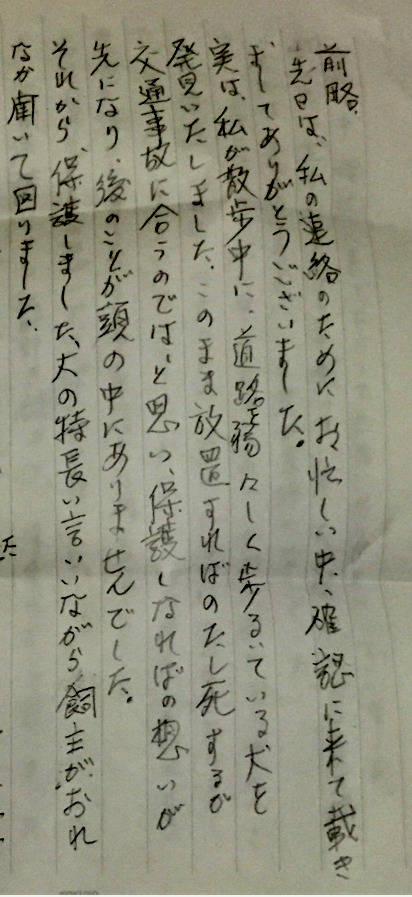 前略、
先日は、私の連絡のためにお忙しい中、確認に来て載き
ましてありがとうございました。
実は、私が散歩中に、道路を弱々しく歩るいている犬を
発見いたしました。このまま放置すればのたし死するか
交通事故に合うのでは、と思い、保護しなればの想いが
先になり、後のことが頭の中にありませんでした。
それから、保護しました、犬の特長い言いながら飼主が、おれ
なか聞いて回りました。
た